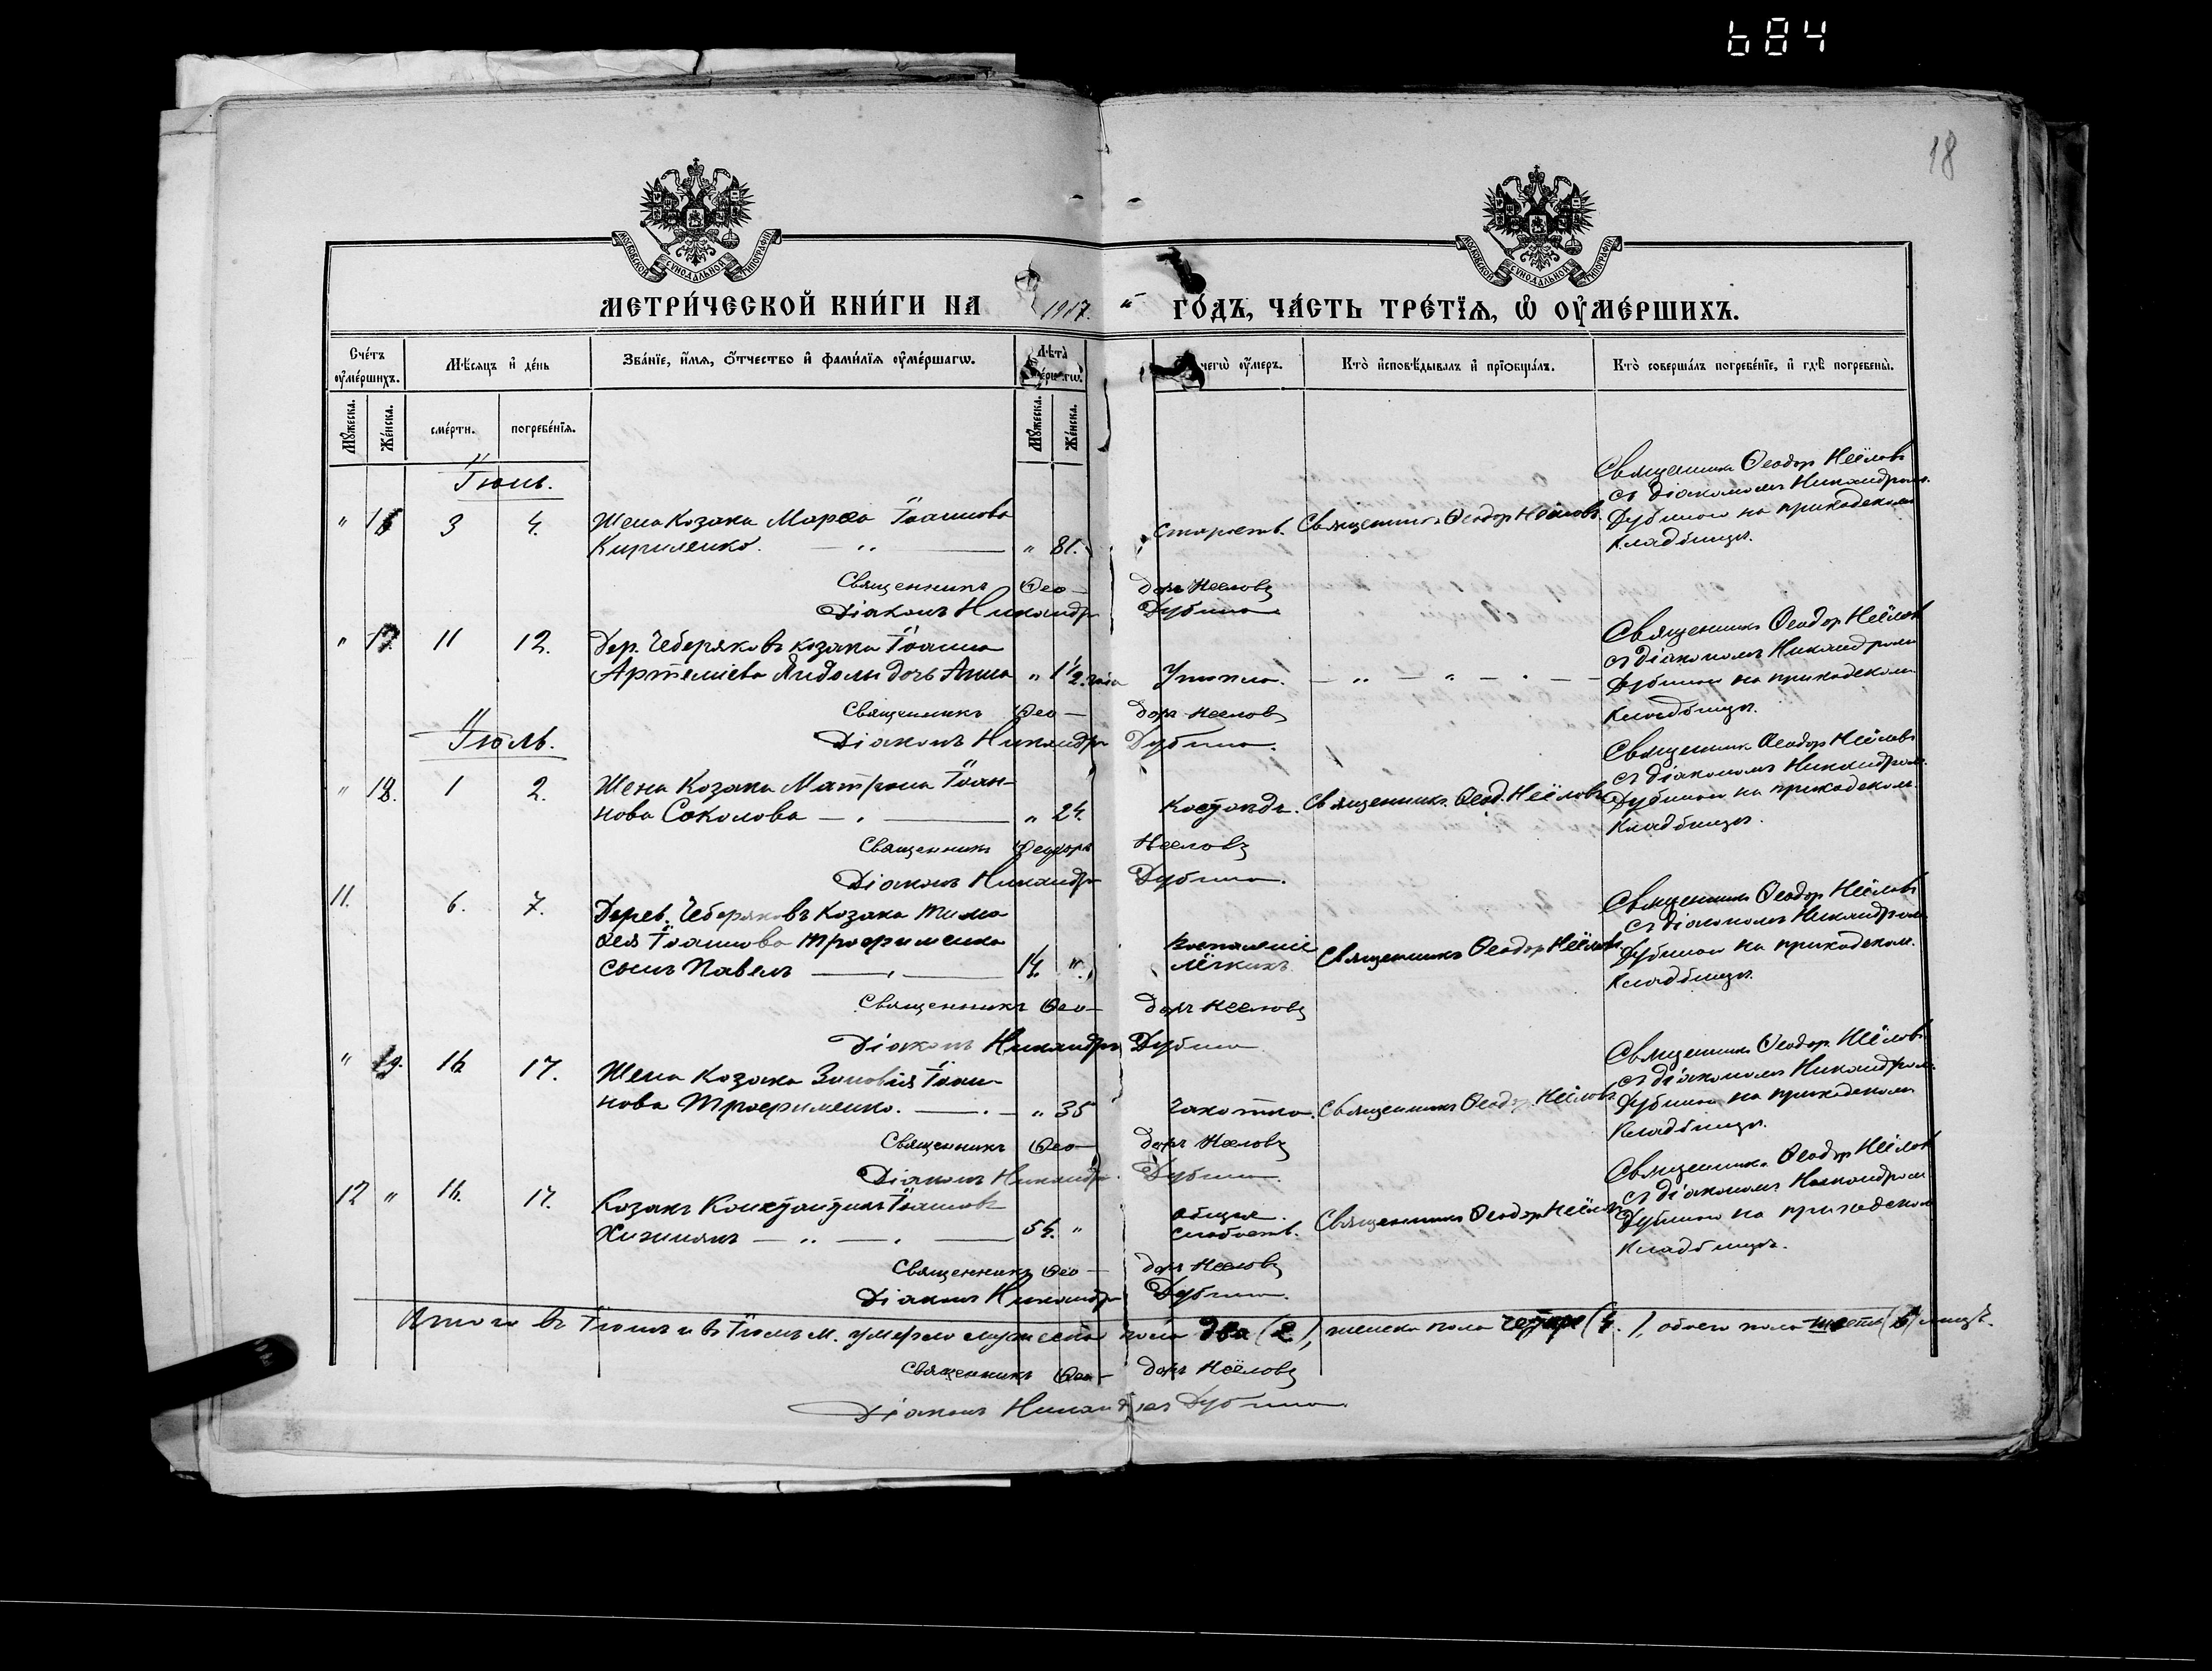 684
18
МОСКОВСКОЙ СУНОДАЛЬНОЙ ТИПОГРАФІИ
МОСКОВСКОЙ СУНОДАЛЬНОЙ ТИПОГРАФІИ
МЕТРИ́ЧЕСКОЙ КНИ́ГИ НА 1917 ГО́ДЪ, ЧА́СТЬ ТРЕ́ТЇѦ, Ѡ҆ ОУ҆МЕ́РШИХЪ.
Сче́тъ оу҆ме́ршихъ.
Мѣ́сѧцъ и҆ де́нь
Зва́нїе, и҆́мѧ, ѻ҆́тчество и҆ фами́лїѧ оу҆ме́ршагѡ.
Лѣ́та
чегѡ̀ оу҆́меръ.
Кто̀ и҆сповѣ́дывалъ и҆ прїѡбща́лъ.
Кто̀ соверша́лъ погребе́нїе, и҆ гдѣ̀ погребены̀.
Мꙋ́жеска.
Же́нска.
сме́рти.
погребе́нїѧ.
Мꙋ́жеска.
Же́нска.
Іюнь.
" 16 3 4. Жена козака Марѳа Іоаннова
Кириленко. " 81.
Старость. Священникъ Ѳеодоръ Неёловъ
Священникъ Ѳеодоръ Неёловъ
съ діакономъ Никандромъ
Дубиною на приходскомъ
кладбищѣ.
Священникъ Ѳеодоръ Неёловъ
Діаконъ Никандръ Дубина
" 17. 11 12. Дер. Чеберяковъ козака Іоанна
Артеміева дочь Анна " 1½ года
Утопла.
Священникъ Ѳеодоръ Неёловъ
съ діакономъ Никандромъ
Дубиною на приходскомъ
кладбищѣ.
Священникъ Ѳеодоръ Неёловъ
Діаконъ Никандръ Дубина.
Іюль.
" 18. 1 2. Жена козака Матрона Іоан-
нова Соколова " 24.
Священникъ Ѳеод. Неёловъ
Священникъ Ѳеодоръ Неёловъ
съ діакономъ Никандромъ
Дубиною на приходском.
кладбищѣ.
Священникъ Ѳеодоръ Неёловъ
Діаконъ Никандръ Дубина.
11. 6. 7. Дерев. Чеберяковъ козака Тимо-
ѳея Іоаннова Трофименка
сынъ Павелъ 14. "
Воспаленіе
лёгкихъ
Священникъ Ѳеодоръ Неёловъ
Священникъ Ѳеодоръ Неёловъ
съ діакономъ Никандромъ
Дубиною на приходском.
кладбищѣ.
Священникъ Ѳеодоръ Неёловъ
Діаконъ Никандръ Дубина
" 19. 16 17. Жена козака Зиновія Іоан-
нова Трофименко. " 35
Чахотка. Священникъ Ѳеодоръ Неёловъ
Священникъ Ѳеодоръ Неёловъ
съ діакономъ Никандромъ
Дубиною на приходскомъ
кладбищѣ.
Священникъ Ѳеодоръ Неёловъ
Діаконъ Никандръ Дубина.
12 " 16. 17. Козакъ Константинъ Іоанновъ
Хижнякъ 54. "
Общая
слабость.
Священникъ Ѳеодоръ Неёловъ
Священникъ Ѳеодоръ Неёловъ
съ діакономъ Никандромъ
Дубиною на приходском
кладбищѣ.
Священникъ Ѳеодоръ Неёловъ
Діаконъ Никандръ Дубина.
Итого въ Іюнѣ и въ Іюлѣ м. умерло мужеска пола два (2), женска пола четыре (4.), обоего пола шесть (6) лицъ.
Священникъ Ѳеодоръ Неёловъ
Діаконъ Никандръ Дубина